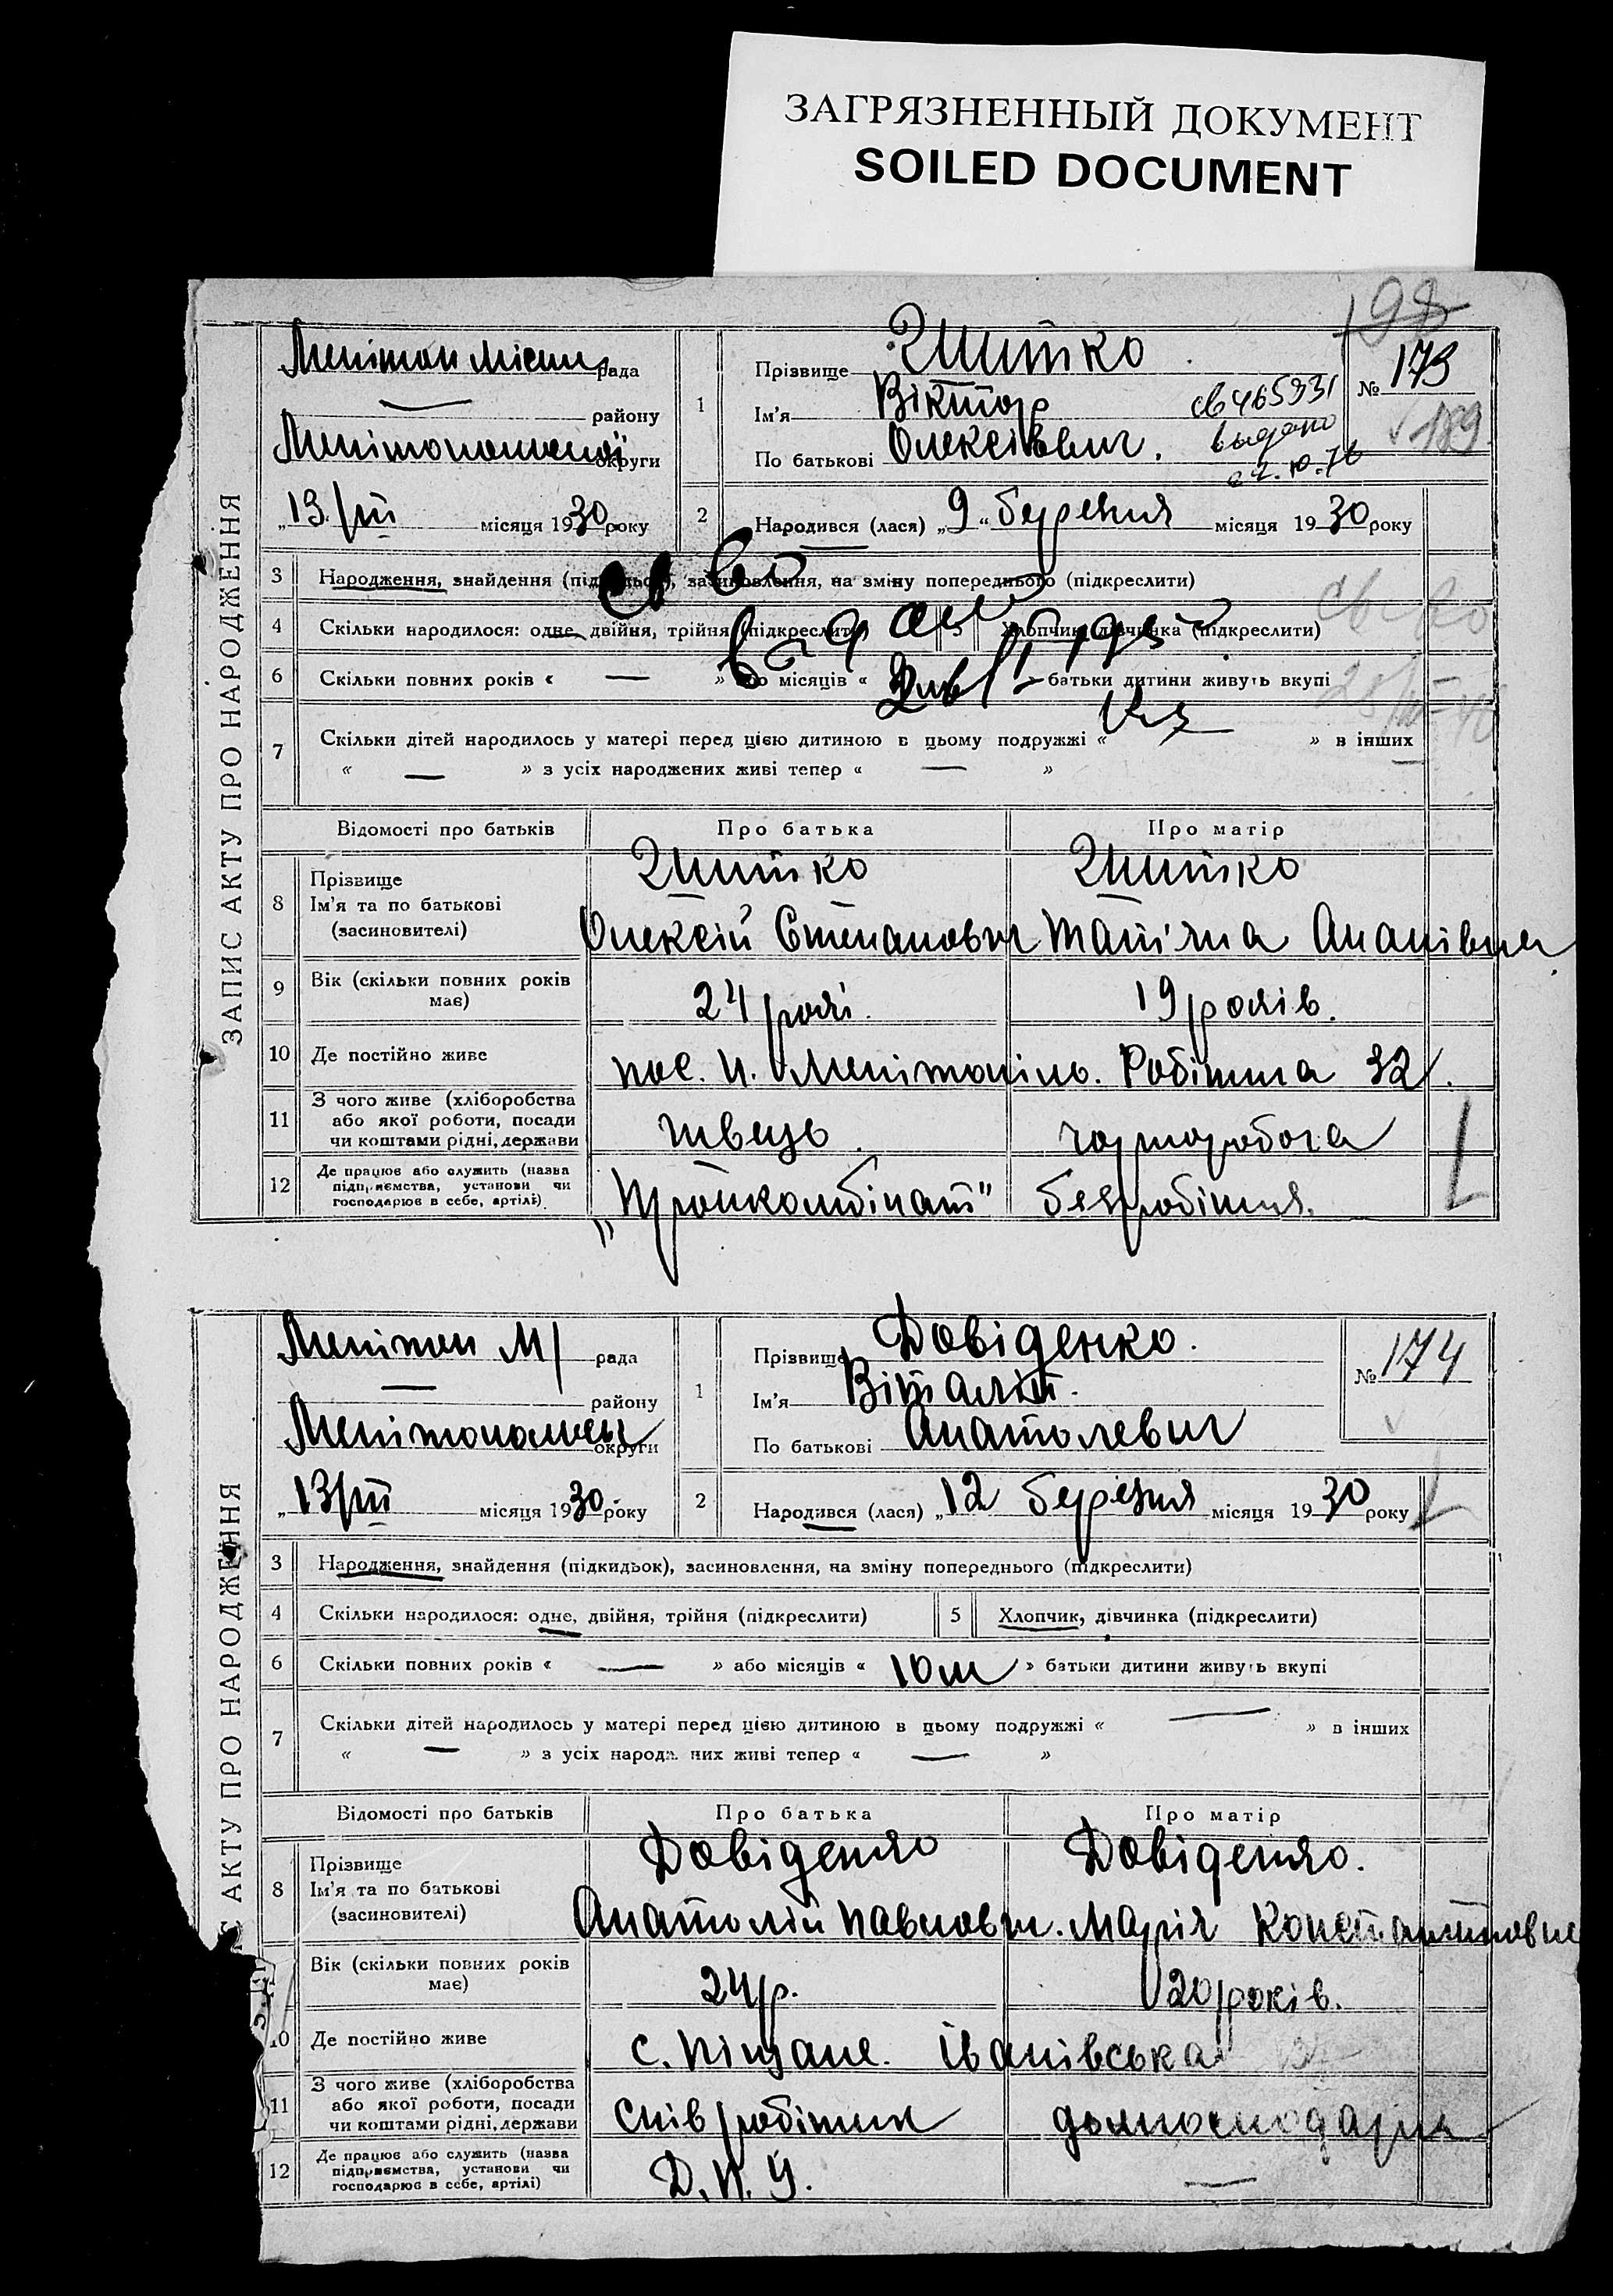 ЗАГРЯЗНЕННЫЙ ДОКУМЕНТ
SOILED DOCUMENT
198
ЗАПИС АКТУ ПРО НАРОДЖЕННЯ
рада
району
округи
„13/III місяця 1930 року
1
Прізвище
Ім'я Віктор
По батькові Олексієвич.
св 465931
выдано
№ 173
189
2 Народився (лася) „9“ березня місяця 1930 року
3 Народження, знайдення (підкидьок), засиновлення, на зміну попереднього (підкреслити)
4 Скільки народилося: одне, двійня, трійня (підкреслити) 5 Хлопчик, дівчинка (підкреслити)
6 Скільки повних років « — » або місяців « » батьки дитини живуть вкупі
7 Скільки дітей народилось у матері перед цією дитиною в цьому подружжі « » в інших
« — » з усіх народжених живі тепер « — »
Відомості про батьків Про батька Про матір
8 Прізвище
Ім'я та по батькові
(засиновителі)
Олексій Степанович Татьяна Ананівна
9 Вік (скільки повних років має) 24 роки. 19 років.
10 Де постійно живе пос. Робітнича 32.
11 З чого живе (хліборобства або якої роботи, посади чи коштами рідні, держави швець. чорноробоча
12 Де працює або служить (назва підприємства, установи чи господарює в себе, артілі). безробітня.
ЗАПИС АКТУ ПРО НАРОДЖЕННЯ
Мелітоп М/ рада
— району
округи
„13/III місяця 1930 року
1
Прізвище Довіденко.
Ім'я Віталій.
По батькові Анатолевич
№ 174
2 Народився (лася) „12 березня місяця 1930 року
3 Народження, знайдення (підкидьок), засиновлення, на зміну попереднього (підкреслити)
4 Скільки народилося: одне, двійня, трійня (підкреслити) 5 Хлопчик, дівчинка (підкреслити)
6 Скільки повних років « — » або місяців « 10 м » батьки дитини живуть вкупі
7 Скільки дітей народилось у матері перед цією дитиною в цьому подружжі « — » в інших
« — » з усіх народж них живі тепер « — »
Відомості про батьків Про батька Про матір
8 Прізвище
Ім'я та по батькові
(засиновителі)
Довіденко Довіденко.
Анатолій Павлович. Марія Константиновна
Вік (скільки повних років має) 24 р. 20 років.
10 Де постійно живе с. Піщане. Іванівська
11 З чого живе (хліборобства або якої роботи, посади чи коштами рідні, держави співробітник домогосподарка
12 Де працює або служить (назва підприємства, установи чи господарює в себе, артілі) —